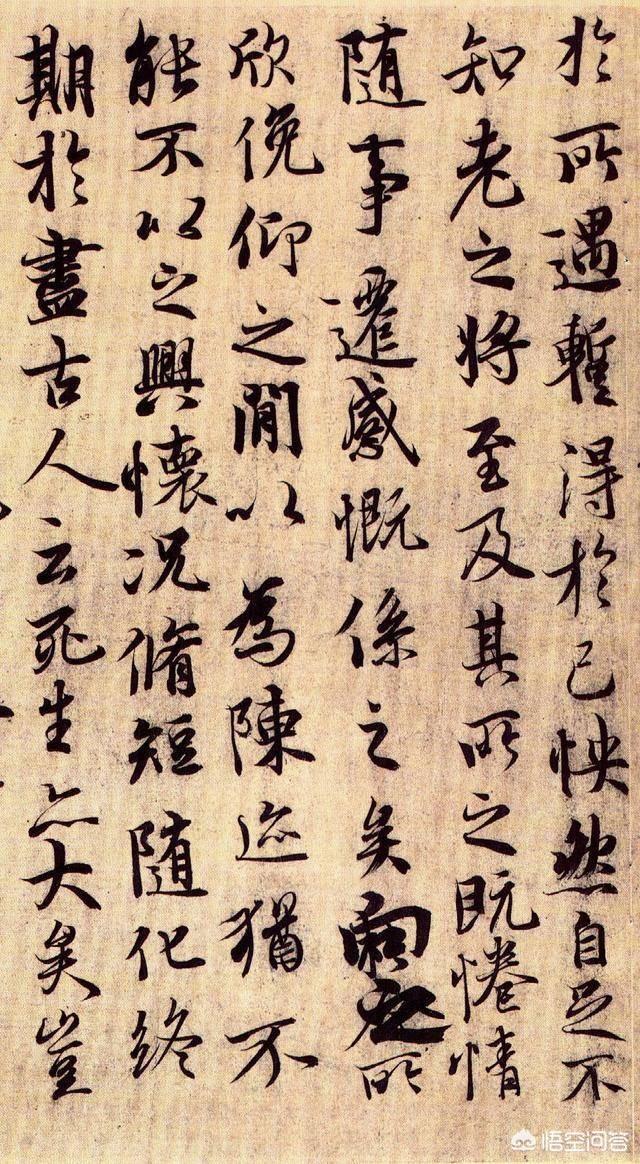 於所遇暫得於己怏然自足不
知老之將至及其所之既惓情
隨事遷感慨係之矣向之所
欣俛仰之閒以為陳迹猶不
能不以之興懷況脩短隨化終
期於盡古人云死生亦大矣豈
悟空问答